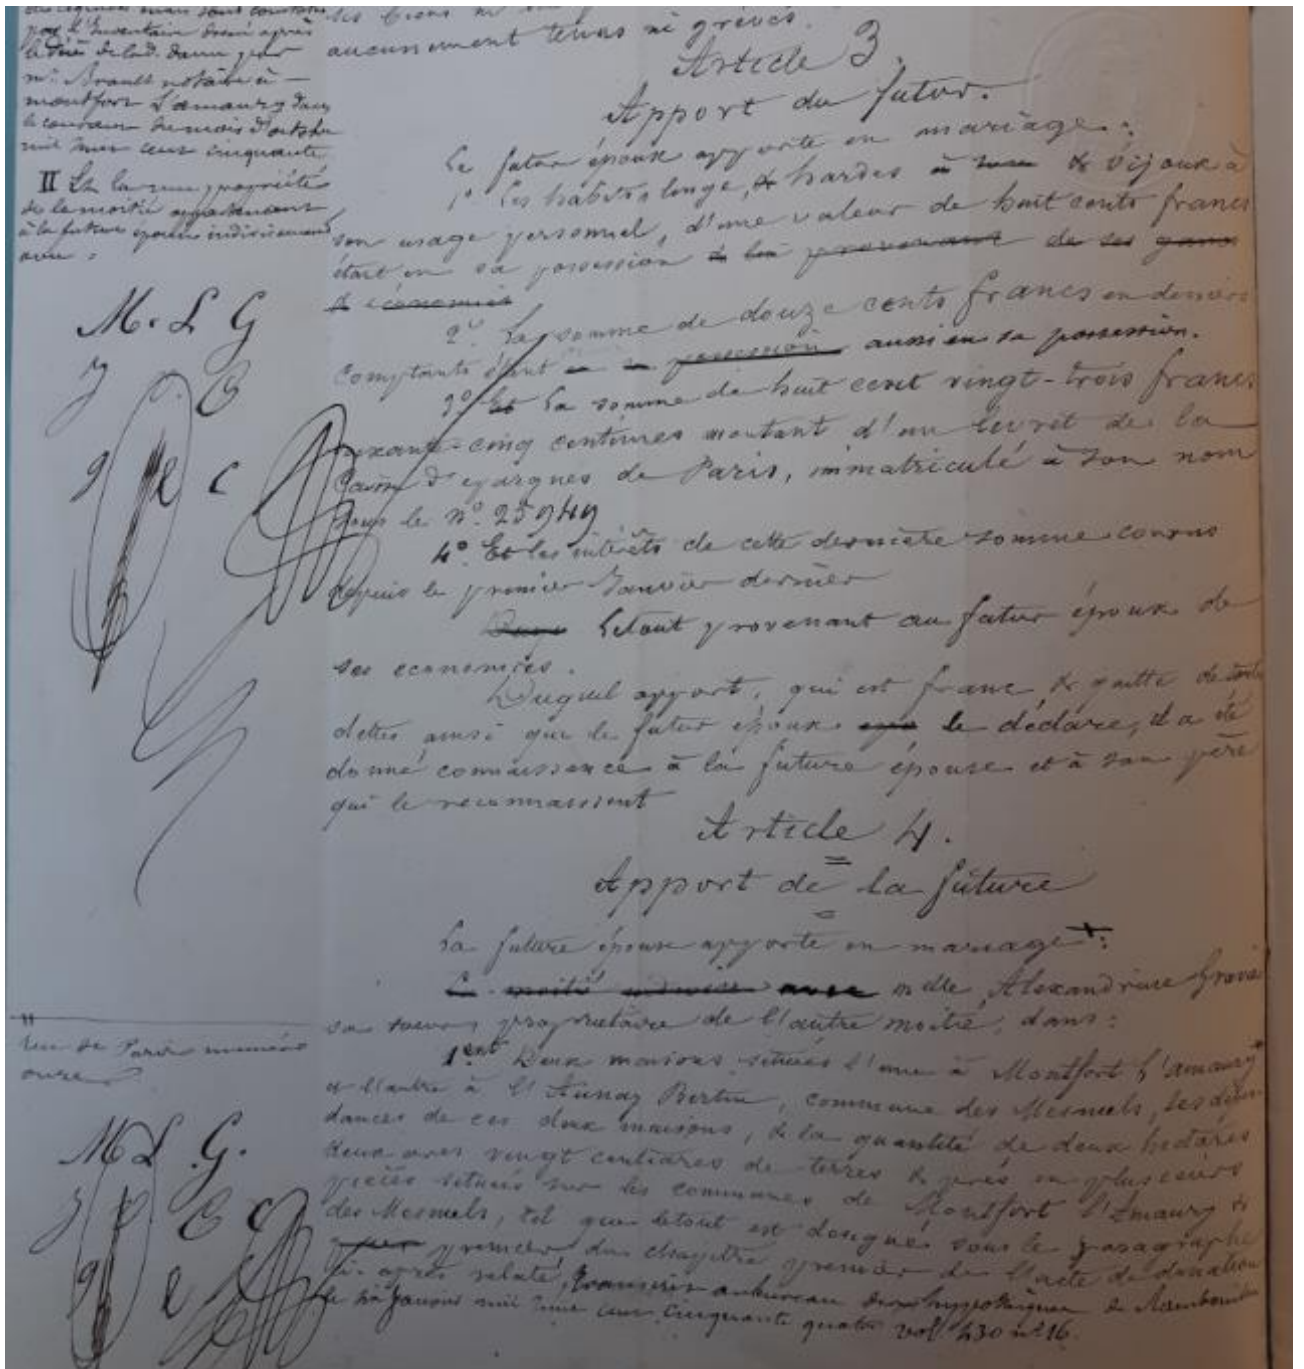 par l'Inventaire dressé après
le décès de lad. dame par
me. Brault notaire à
montfort L'amaury dans
le courant du mois d'octobre
mil huit cent cinquante
II Et la nue propriété
de la moitié appartenant
à la future épouse indivisément
avec :
M. L G
J C
g l c
aucunement tenus ni grévés.
Article 3.
Apport du futur.
Le futur époux apporte en mariage :
1° Les habits, linge, & hardes & bijoux à
son usage personnel, d'une valeur de huit cents francs
étant en sa possession & lui provenant de ses gains
& économies
2° La somme de douze cents francs en deniers
comptants étant en sa possession aussi en sa possession.
3° Et la somme de huit cent vingt-trois francs
soixante-cinq centimes montant d'un livret de la
Caisse d'epargnes de Paris, immatriculé à son nom
sous le n°. 25949
4° Et les intérêts de cette dernière somme courus
depuis le premier Janvier dernier
Letout provenant au futur époux de
ses economies.
Duquel apport, qui est franc & quitte de toutes
dettes ainsi que le futur époux le déclare, il a été
donné connaissance à la future épouse et à son père
qui le reconnaissent
Article 4.
Apport de la future
La future épouse apporte en mariage + :
La moitié indivise avec mlle Alexandrine
sa soeur propriétaire de l'autre moitié, dans :
1ent Deux maisons situées l'une à Montfort l'amaury
et l'autre à l'Aunay Bertin, commune des Mesnuls, les dépen
dances de ces deux maisons, & la quantité de deux hectares
deux ares vingt centiares de terres & prés en plusieurs
pièces situées sur les communes de Montfort l'Amaury &
des Mesnuls, tel que letout est désigné sous le paragraphe
premier du chapitre premier de l'acte de donation
ci-après relaté, transcrit au bureau des hypothèques de Rambouillet
le Janvier mil huit cent cinquante quatre vol 430 n° 16.
rue de Paris numéro
onze
M L .G.
J C C
g l